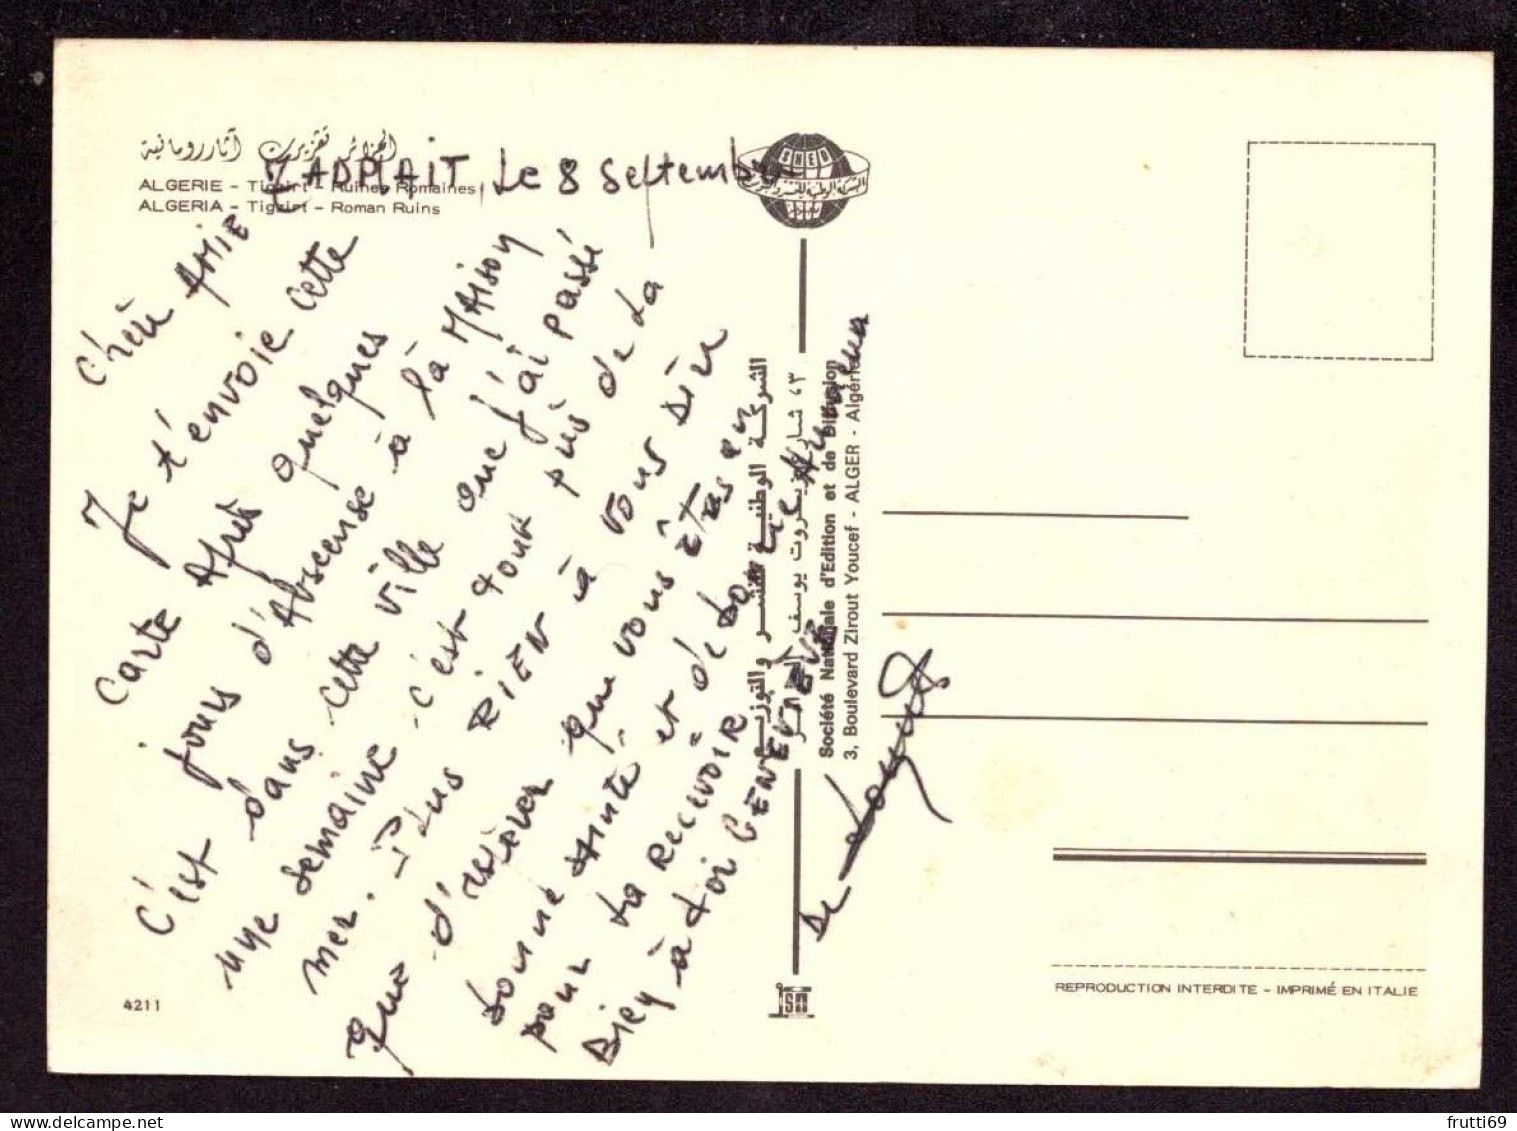 الجزائر تقزيرت آثار رومانية
ALGERIE - Tigzirt - Ruines Romaines
ALGERIA - Tigzirt - Roman Ruins
TADMAIT, Le 8 Septembre
Chère AMIE
Je t'envoie cette
carte Après quelques
jours d'Abscense à la MAISON
C'est dans cette ville que j'ai passé
une semaine c'est tout près de la
mer. Plus RIEN à vous dire
que d'espèrer que vous êtes en
bonne santé, et de
pour la RECEVOIR
Bien à toi GENEVIEVE
De
SNED
الشركة الوطنية للنشر والتوزيع
الشركة الوطنية للنشر والتوزيع
٣، شارع زيروت يوسف - الجزائر
Société Nationale d'Edition et de Diffusion
3, Boulevard Zirout Youcef - ALGER - Algérie
4211
REPRODUCTION INTERDITE - IMPRIMÉ EN ITALIE
frutti69